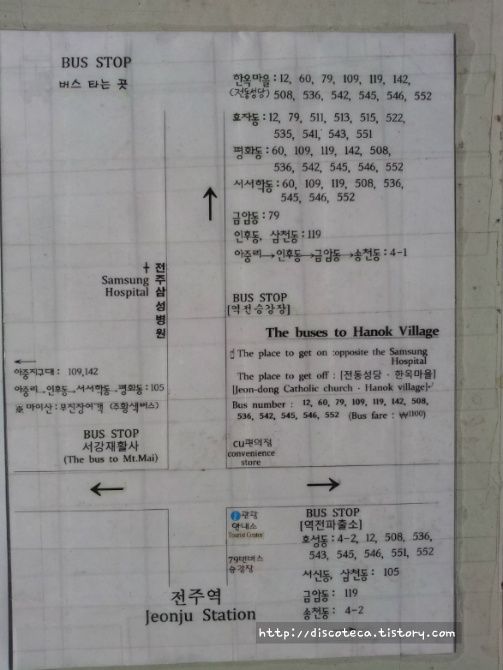 BUS STOP
버스 타는 곳
한옥마을 : 12, 60, 79, 109, 119, 142,
(전동성당) 508, 536, 542, 545, 546, 552
효자동 : 12, 79, 511, 513, 515, 522,
535, 541, 543, 551
평화동 : 60, 109, 119, 142, 508,
536, 542, 545, 546, 552
서서학동 : 60, 109, 119, 508, 536,
545, 546, 552
금암동 : 79
인후동, 삼천동 : 119
아중리→인후동→금암동→송천동 : 4-1
Samsung
Hospital
전주삼성병원
BUS STOP
[역전승강장]
The buses to Hanok Village
The place to get on :opposite the Samsung
Hospital
The place to get off : [전동성당 · 한옥마을]
[Jeon-dong Catholic church · Hanok village]
Bus number : 12, 60, 79, 109, 119, 142, 508,
536, 542, 545, 546, 552 (Bus fare : ₩1100)
←
아중지구대 : 109,142
아중리→인후동→서서학동→평화동 : 105
※ 마이산 : 무진장여객 (주황색버스)
BUS STOP
서강재활사
(The bus to Mt.Mai)
CU편의점
convenience
store
관광
안내소
Tourist Center
79번버스
승강장
BUS STOP
[역전파출소]
호성동 : 4-2, 12, 508, 536,
543, 545, 546, 551, 552
서신동, 삼천동 : 105
금암동 : 119
송천동 : 4-2
전주역
Jeonju Station
http://discoteca.tistory.com